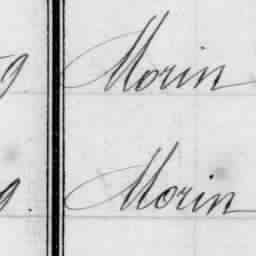 9. Morin
9. Morin